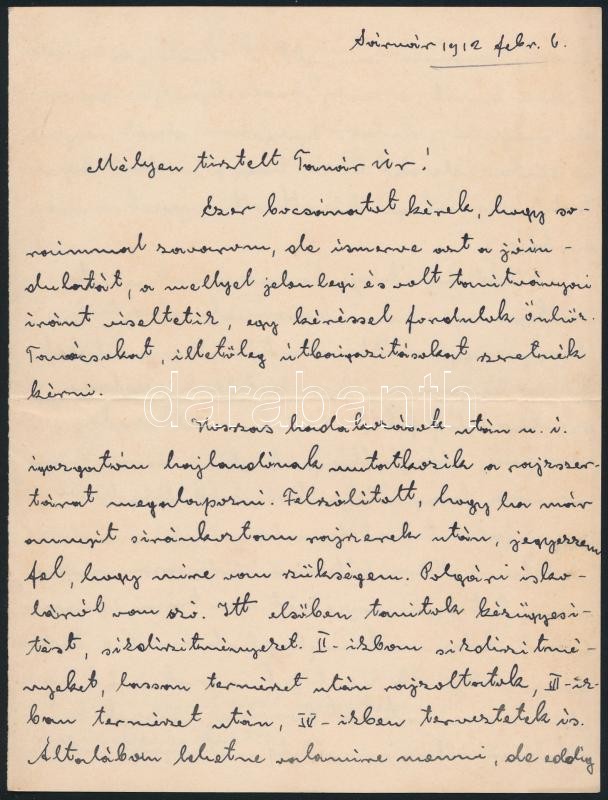 Sárvár 1912 febr. 6.
Mélyen tisztelt Tanár Úr!
Ezer bocsánatot kérek, hogy so-
raimmal zavarom, de ismerve azt a jóin-
dulatát, a mellyel jelenlegi és volt tanitványai
iránt viseltetik, egy kéréssel fordulok Önhöz.
Tanácsokat, illetőleg útbaigazitásokat szeretnék
kérni.
darabanth
Hosszas hadakozások után u. i.
igazgatóm hajlandónak mutatkozik a rajzszer-
tárat megalapozni. Felszólitott, hogy ha már
annyit siránkoztam rajzszerek után, jegyezzem
fel, hogy mire van szükségem. Polgári isko-
láról van szó. Itt elsőben tanitok kézügyesi-
tést, sikdiszitményeket. II-ikban sikdiszitmé-
nyeket, lassan természet után rajzoltatok, III-ik-
ban természet után, IV-ikben terveztetek is.
Általában lehetne valamire menni, de eddig